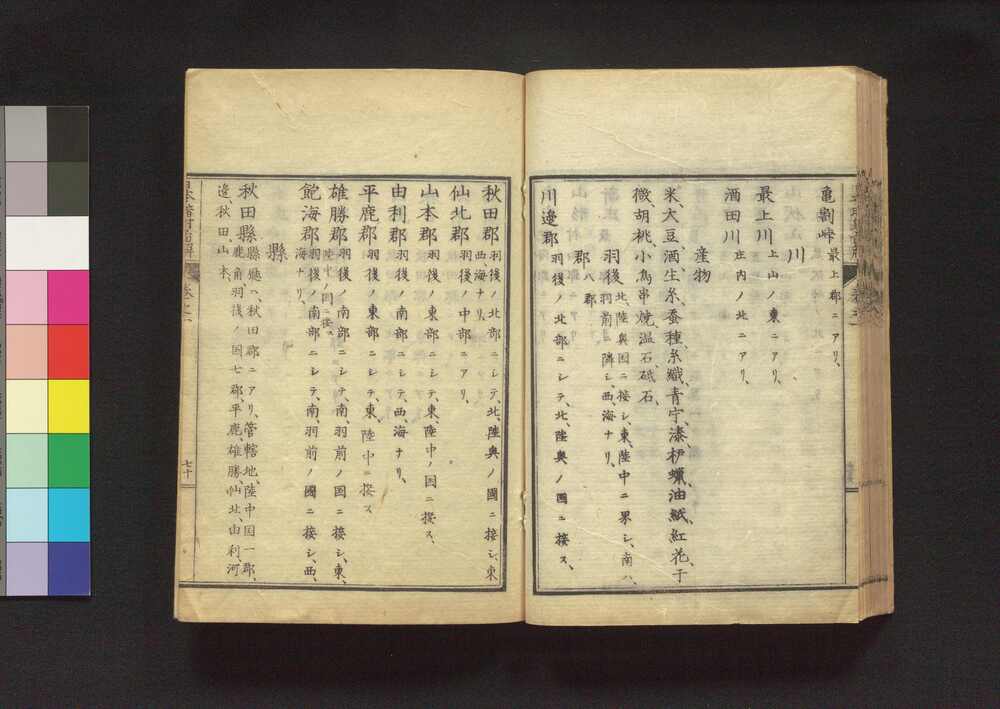 亀割峠 最上郡ニアリ、
川
最上川 上山ノ東ニアリ、
酒田川 庄内ノ北ニアリ、
産物
米、大豆、酒、生糸、蚕種、糸織、青苧、漆、蠟、油、紙、紅花、干
薇、胡桃、小鳥串焼、温石、砥石、
羽後 北、陸奥国ニ接シ、東、陸中ニ界シ、南ハ、
羽前ニ隣シ、西、海ナリ、
郡 八郡
川邉郡 羽後ノ北部ニシテ、北、陸奥ノ國ニ接ス、
秋田郡 羽後ノ北部ニシテ、北、陸奥ノ國ニ接シ、東
西、海ナリ、
仙北郡 羽後ノ中部ニアリ、
山本郡 羽後ノ北部ニシテ、東、陸中ノ国ニ接ス、
由利郡 羽後ノ南部ニシテ、西、海ナリ、
平鹿郡 羽後ノ東部ニシテ、東、陸中ニ接ス
雄勝郡 羽後ノ南部ニシテ、南羽前ノ国ニ接シ、東、
陸中ノ国ニ接ス
飽海郡 羽後ノ南部ニシテ、南羽前ノ國ニ接シ、西、
海ナリ、
縣
秋田縣 縣廳ハ、秋田郡ニアリ、管轄地、陸中国一郡、
鹿角、羽後ノ国七郡、平鹿、雄勝、仙北、由利、河
邉、秋田、山本、
七十